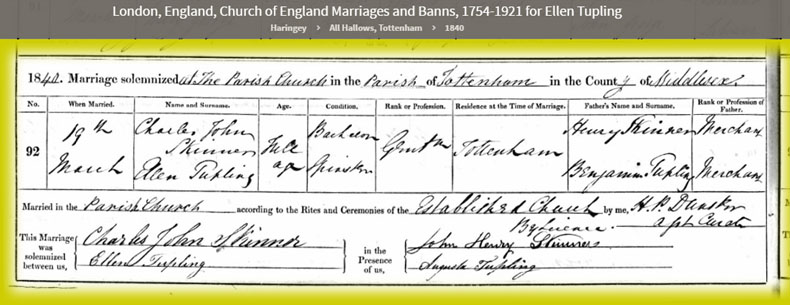 London, England, Church of England Marriages and Banns, 1754-1921 for Ellen Tupling
Haringey > All Hallows, Tottenham > 1840
1840. Marriage solemnized at The Parish Church in the Parish of Tottenham in the County of Middlesex.
No. When Married. Name and Surname. Age. Condition. Rank or Profession. Residence at the Time of Marriage. Father's Name and Surname. Rank or Profession of Father.
92 19th March Charles John Skinner Full age Bachelor Gentm Tottenham Henry Skinner Merchant
Ellen Tupling Spinster Benjamin Tupling Merchant
Married in the Parish Church according to the Rites and Ceremonies of the Established Church by me,
By Licence.
This Marriage was solemnized between us, Charles John Skinner
Ellen Tupling
in the Presence of us, John Henry Skinner
Augusta Tupling